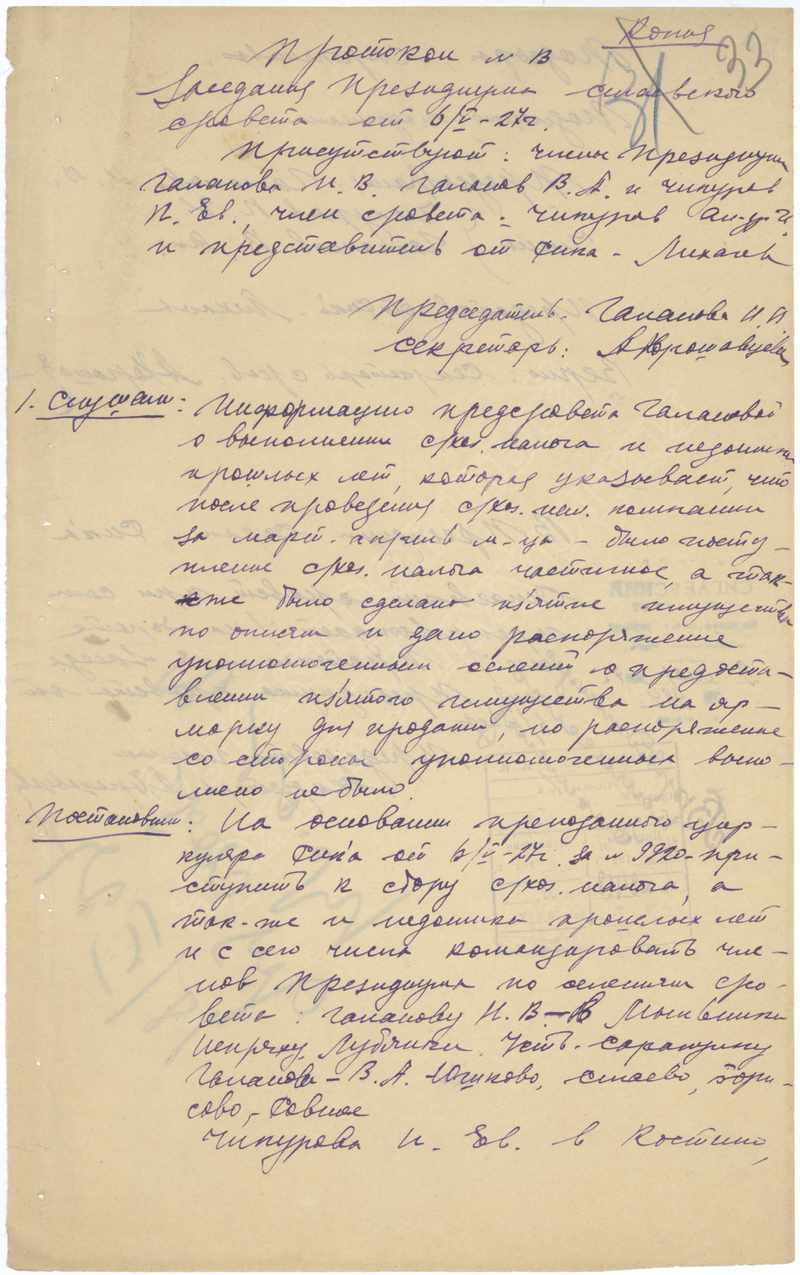 Копия
33
31
Протокол № 13
Заседания Президиума силаевского
с/совета от 6/V-27г.
Присутствуют: члены Президиума
Галанова Н. В. Галанов В. А. и Чипуров
Н. Ев., член с/совета - Чипуров
и представитель от Сика -
Председатель - Галанова Н. В.
секретарь:
1. Слушали: Информацию предс/совета Галановой
о выполнении с/хоз. налога и недоимки
прошлых лет, которая указывает, что
после проведения с/хоз. нал. компании
за март-апрель м-ца - было посту-
пление с/хоз. налога частичное, а так-
же было сделано из'ятие имущества
по описям и дано распоряжение
уполномоченным селений о предоста-
влении из'ятого имущества на яр-
марку для продажи, но распоряжение
со стороны уполномоченных выпо-
лнено не было.
Постановили: На основании преподанного цир-
куляра Сик'а от 6/V-27г. за № 9920 - при-
ступить к сбору с/хоз. налога, а
так-же и недоимки прошлых лет
и с сего числа командировать чле-
нов Президиума по селениям с/со-
вета: Галанову Н. В. - в
Непряху, Лубянки, Усть-сарапулку
Галанова - В. А. Юшково, силаево, Бори-
сово,
Чипурова Н. Ев. в Костино,